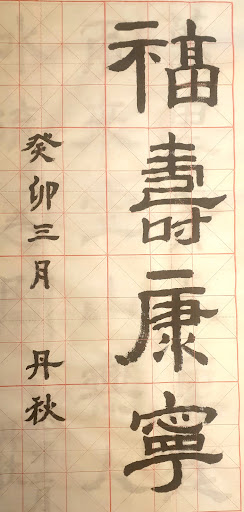 福壽康寧
癸卯三月 丹秋